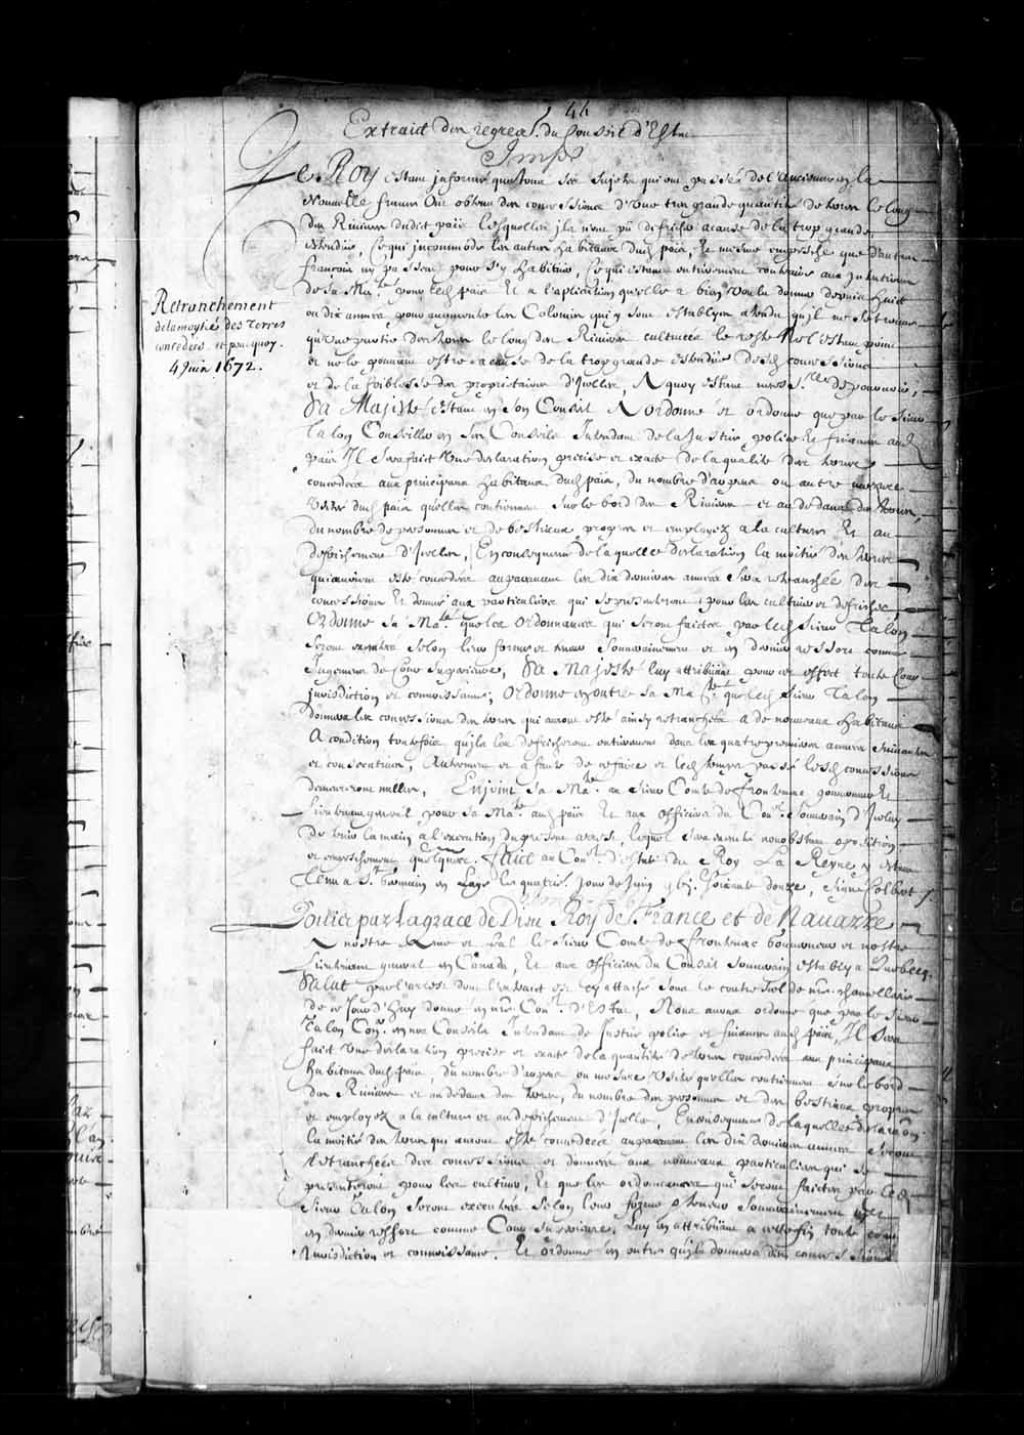 44
Extraict des regres. du Conseil d'Estat
Imps
Le Roy estant informé que tous ses sujets qui ont passés de l'ancienne en la
Nouvelle france Ont obtenu des concessions d'Une tres grande quantité de terres le long
des Rivieres dudit païs lesquelles ils n'ont pû defricher acause de la trop grande
estendüe, Ce qui incommode les autres habitans dud. païs, Et mesme empesche que d'autres
françois n'y passent pour s'y habituer, Ce qui estant entierement contraire aux Intentions
de Sa Ma.té pour led. païs Et a l'aplication qu'elle a bien Voulu donner depuis huict
ou dix années pour augmenter les Colonies qui y sont establyes attendu qu'il ne se trouve
qu'une partie des terres le long des Rivieres cultivées le reste Ne l'estant point
et ne le pouvant estre a cause de la trop grande estendüe desd. concessions
et de la foiblesse des proprietaires d'Icelles, A quoy estant necess.re de pourvoir,
Sa Majesté estant en Son Conseil A ordonné et ordonne que par le Sieur
Talon Conseiller en Ses Conseils Intendant de la Justice police Et finances aud.
païs Il Sera fait Une declaration precise et exacte de la qualité des terres
concedées aux principaux habitans dud. païs, du nombre d'arpens ou autre mesure
Usitée dud. païs qu'elles contiennent Sur le bord des Rivieres et au dedans des terres,
du nombre de personnes et de bestiaux propres et employez a la culture Et au
defrichement d'Icelles, En consequence de laquelle declaration la moitié des terres
qui avoient esté concedées auparavant les dix dernieres années Sera retranchée des
concessions Et donnée aux particuliers qui se presenteront pour les cultiver et defricher
Ordonne Sa Ma.té que les Ordonnances qui Seront faictes par led. Sieur Talon
Seront executées Selon leur forme et teneur Souverainement et en dernier ressort comme
Jugemens de Cour Superieure, Sa Majesté luy attribüant pour cet effect toute Cour
jurisdiction et connoissance; Ordonne en outre Sa Ma.té que led. Sieur Talon
donnera les concessions des terres qui auront esté ainsy retranchées a de nouveaux habitans
A condition toutefois qu'ils les defricheront entierement dans les quatre premieres années Suivantes
et consecutives, Autrement et a faute de ce faire et led. temps passé lesd. concessions
demeureront nulles, Enjoint Sa Ma.té au Sieur Comte de frontenac gouverneur Et
Lieutenant general pour Sa Ma.té aud. païs Et aux officiers du Con.el Souverain d'Iceluy
De tenir la main a l'execution du present arrest, lequel Sera executé nonobstant oposition
et empeschement quelconque. faict au Con.el d'Estat du Roy La Reyne y estant
Tenu a S.t Germain en Laye le quatrie.e Jour de Juin g bj.c Soixante douze, Signé Colbert
Retranchement
de la moytié des Terres
concedées et pourquoy.
4 Juin 1672.
Louis par La grace de Dieu Roy de France et de Navarre
A nostre Amé et feal le Sieur Comte de frontenac Gouverneur et nostre
Lieutenant general en Canada, Et aux officiers du Conseil Souverain estably a Quebecq
Salut par l'arrest dont l'extraict est cy attaché sous le contre scel de nre. chancellerie
de ce Jour d'huy donné en nre. Con.el d'Estat, Nous avons ordonné que par le Sieur
Talon Con.er en nos Conseils Intendant de Justice police et finances aud. païs, Il Sera
fait Une declaration precise et exacte de la quantité de terres concedées aux principaux
habitans dud. païs, du nombre d'arpens ou mesure Usitée qu'elles contiennent sur le bord
des Rivieres et au dedans des terres, du nombre des personnes et des bestiaux propres
et employez a la culture et au defrichement d'Icelles, En consequence de laquelle declaraōn
la moitié des terres qui avoient esté concedées auparavant les dix dernieres années Seront
Retranchées des concessions et données aux nouveaux particuliers qui se
presenteront pour les cultiver, Et que les ordonnances qui Seront faictes par led.
Sieur Talon Seront executées Selon leur forme et teneur Souverainement et
en dernier ressort comme Cour Superieure, Luy en attribüant a cette fin toute cour
Jurisdiction et connoissance, Et ordonne en outre qu'il donnera des concessions